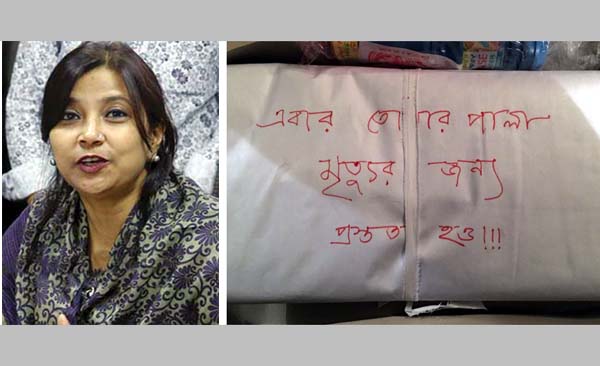 এবার তোমার পালা
মৃত্যুর জন্য
প্রস্তুত হও!!!